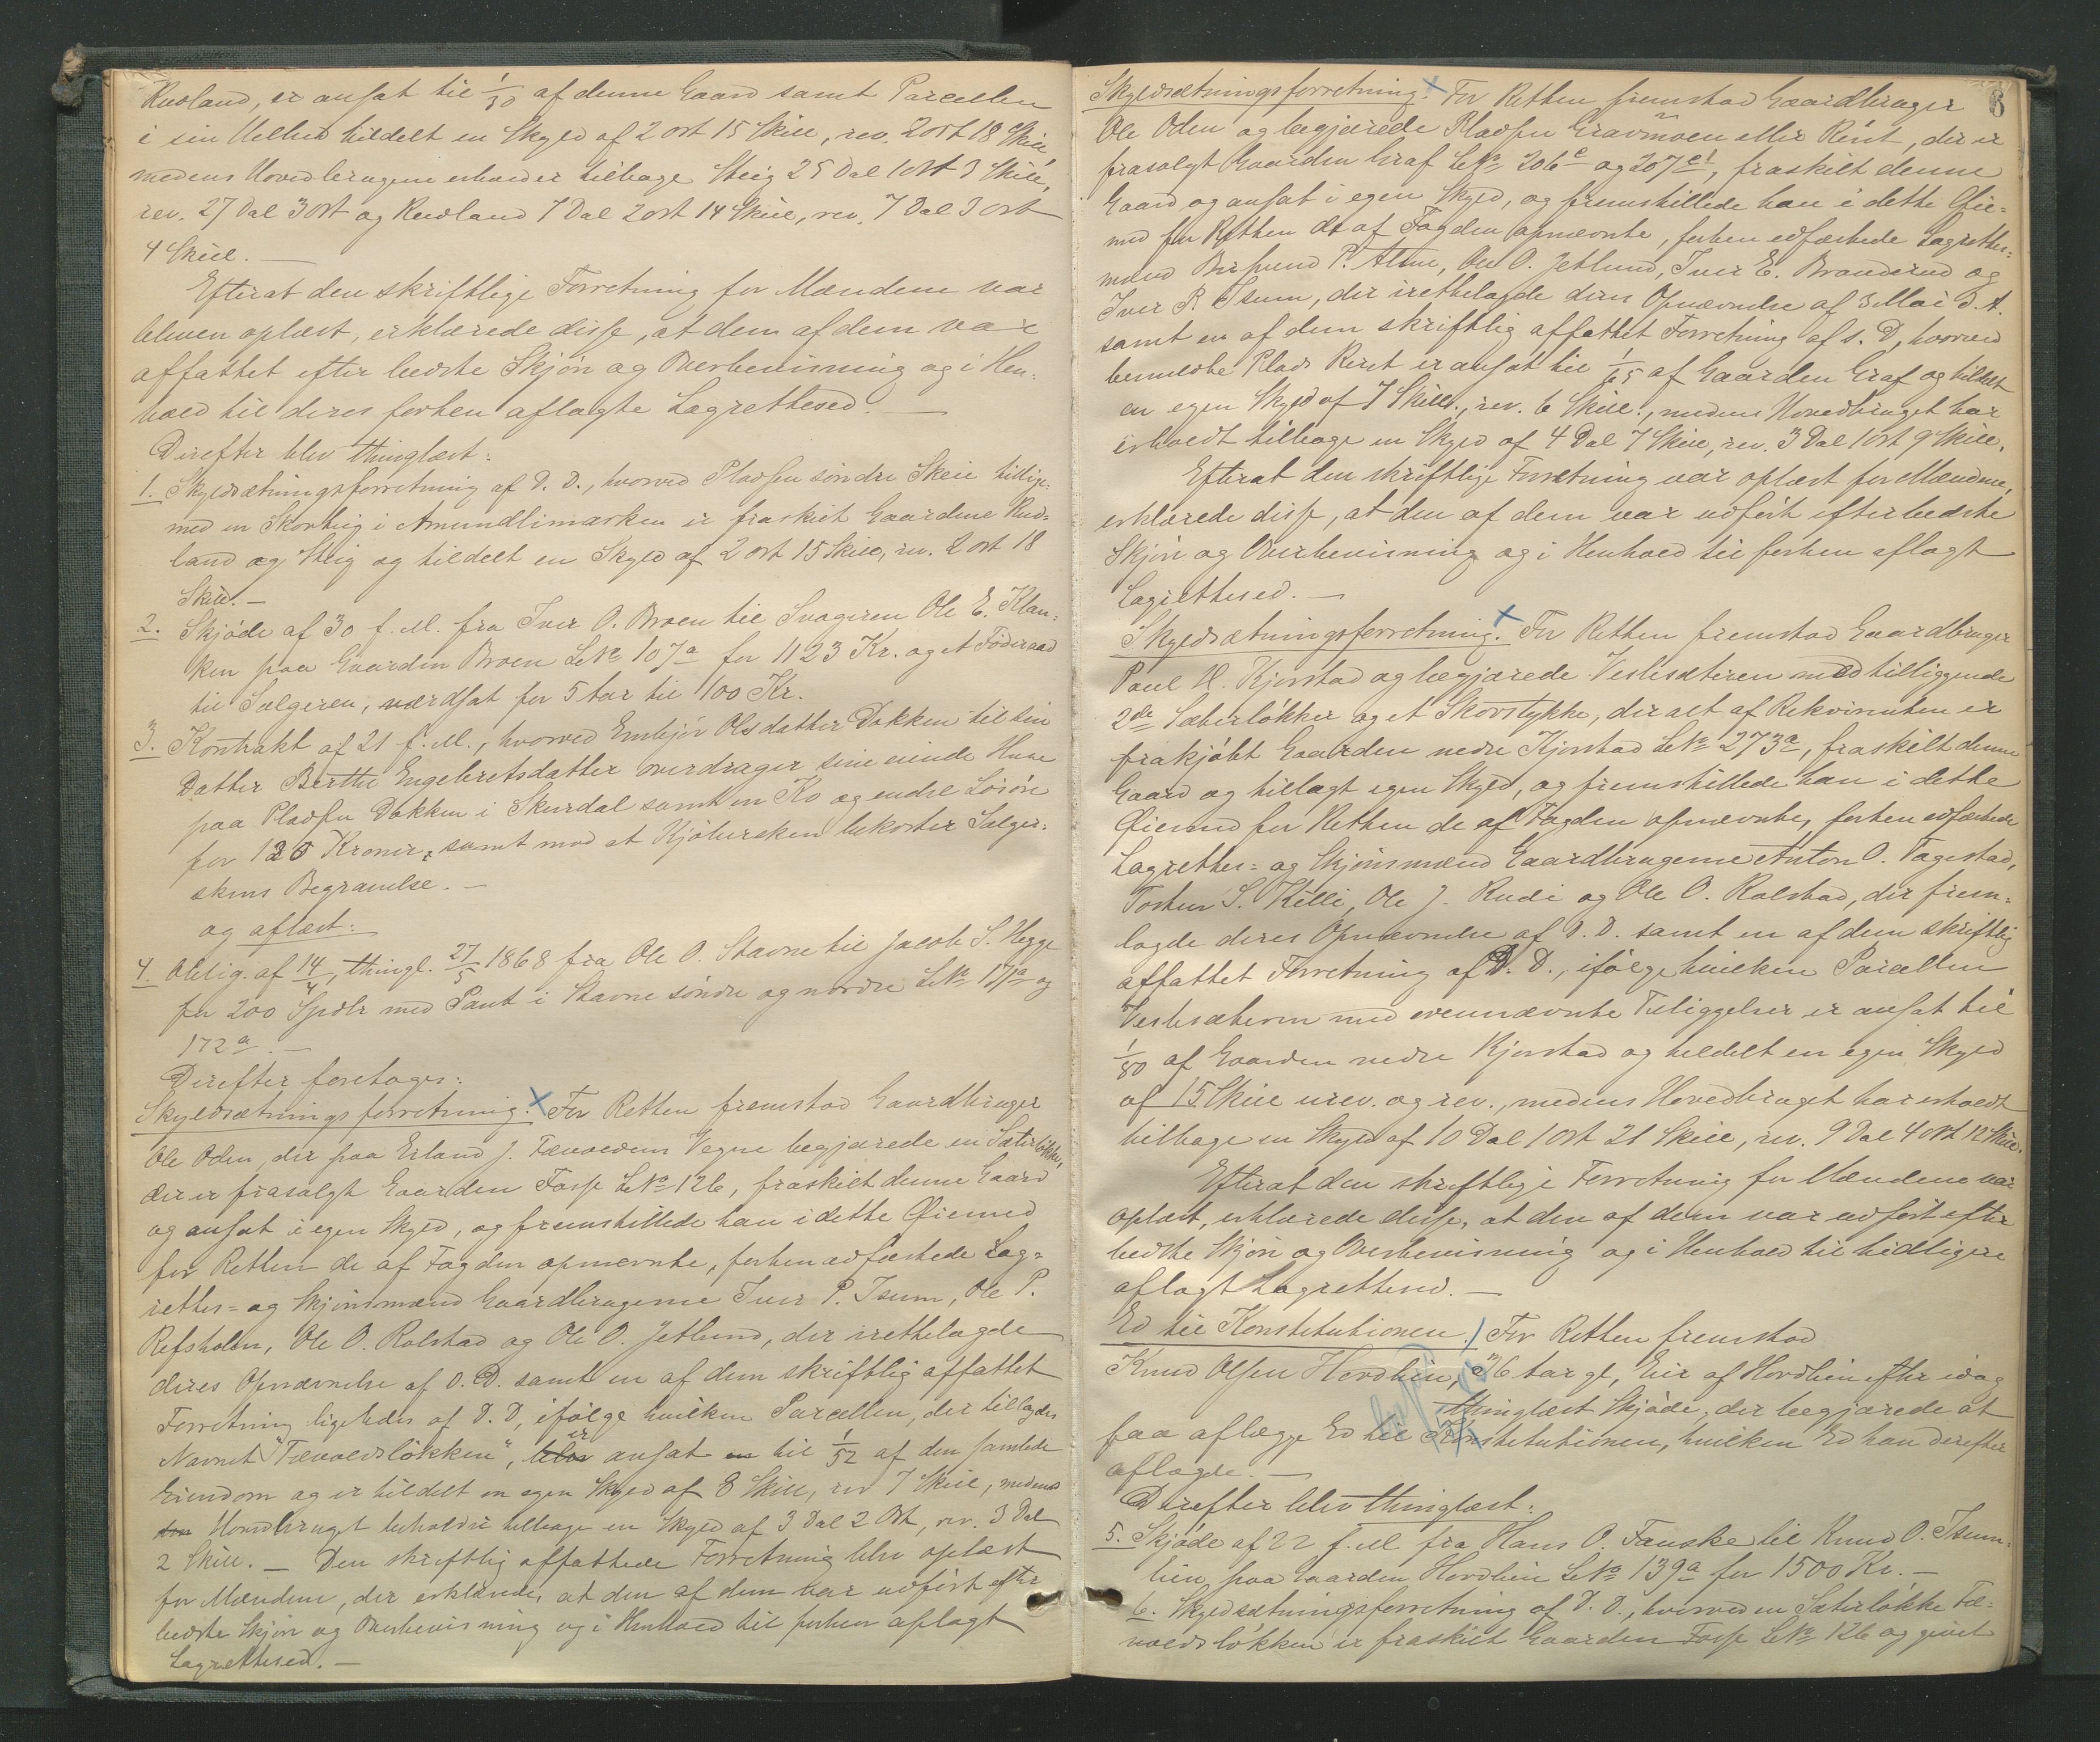 Rudland, er ansat til 1/30 af denne Gaard samt Parcellen
i sin Helhed tildelt en Skyld af 2 ort 15 Skill, rev. 2 ort 18 Skill,
medens Hovedbrugene erholder tilbage Steig 25 Dal 1 Ort 3 Skill,
rev. 27 Dal 3 ort og Rudland 7 Dal 2 ort 14 Skill, rev. 7 Dal 3 ort
4 Skill. —
Efterat den skriftlige Forretning for Mændene var
bleven oplæst, erklærede disse, at den af dem var
affattet efter bedste Skjøn og Overbevisning og i Hen-
hold til deres forhen aflagte Lagrettesed. —
Derefter blev thinglæst:
1. Skyldsætningsforretning af D. D., hvorved Pladsen søndre Skeie tillige-
med en Skovteig i Amundlimarken er fraskilt Gaardene Rud-
land og Steig og tildelt en Skyld af 2 ort 15 Skill, rev. 2 ort 18
Skill. —
2. Skjøde af 30 f. M. fra Iver O. Broen til Svogeren Ole E. Klan-
ken paa Gaarden Broen LNo 107a for 1123 Kr. og et Føderaad
til Sælgeren, værdsat for 5 Aar til 1100 Kr.
3. Kontrakt af 21 f. M., hvorved Embjør Olsdatter Dokken til sin
Datter Berthe Engebretsdatter overdrager sine eiende Huse
paa Pladsen Dokken i Skurdal samt en Ko og endel Løsøre
for 120 Kroner, samt mod at Kjøbersken bekoster Sælger-
skens Begravelse. —
og aflæst:
4. Oblig. af 14/4, thingl. 27/5 1868 fra Ole O. Stavne til Jacob S. Hegge
for 200 Spdlr med Pant i Stavne søndre og nordre LNo 171a og
172a. —
Derefter foretoges:
Skyldsætningsforretning. For Retten fremstod Gaardbruger
Ole Oden, der paa Erland J. Tævoldens Vegne begjærede en Sæterløkke,
der er frasolgt Gaarden Forse LNo 126, fraskilt denne Gaard
og ansat i egen Skyld, og fremstillede han i dette Øiemed
for Retten de af Fogden opnævnte, forhen edfæstede Lag-
rettes- og Skjønsmænd Gaardbrugerne Iver P. Isum, Ole P.
Refsholen, Ole O. Rolstad og Ole O. Jetlund, der irettelagde
deres Opnævnelse af D. D. samt en af dem skriftlig affattet
Forretning ligeledes af D. D, ifølge hvilken Parcellen, der tillagdes
Navnet "Tævoldsløkken", er ansat til 1/52 af den samlede
Eiendom og er tildelt en egen Skyld af 8 Skill, rev 7 Skill, medens
Hovedbruget beholder tilbage en Skyld af 3 Dal 2 Ort, rev. 3 Dal
2 Skill. — Den skriftlig affattede Forretning blev oplæst
for Mændene, der erklærede, at den af dem var udført efter
bedste Skjøn og Overbevisning og i Henhold til forhen aflagt
Lagrettesed. —
8
Skyldsætningsforretning. For Retten fremstod Gaardbruger
Ole Oden og begjærede Pladsen Gravmoen eller Rent, der er
frasolgt Gaarden Graf LNo 206c og 207c1, fraskilt denne
Gaard og ansat i egen Skyld, og fremstillede han i dette Øie-
med for Retten de af Fogden opnævnte, forhen edfæstede Lagrettes-
mænd P. Alme, Ole O. Jetlund, Iver E. Branderud og
Iver P. Isum, der irettelagde deres Opnævnelse af 3 Mai d. A.
samt en af dem skriftlig affattet Forretning af s. D, hvorved
bemeldte Plads Rent er ansat til 1/65 af Gaarden Graf og tildelt
en egen Skyld af 7 Skill., rev. 6 Skill., medens Hovedbruget har
erholdt tilbage en Skyld af 4 Dal 7 Skill, rev. 3 Dal 1 ort 9 Skill.
Efterat den skriftlige Forretning var oplæst for Mændene,
erklærede disse, at den af dem var udført efter bedste
Skjøn og Overbevisning og i Henhold til forhen aflagt
Lagrettesed. —
Skyldsætningsforretning. For Retten fremstod Gaardbruger
Paul H. Kjorstad og begjærede Veslesæteren med tilliggende
2de Sæterløkker og et Skovstykke, der alt af Rekvirenten er
frakjøbt Gaarden nedre Kjorstad LNo 273a, fraskilt denne
Gaard og tillagt egen Skyld, og fremstillede han i dette
Øiemed for Retten de af Fogden opnævnte, forhen edfæstede
Lagrettes- og Skjønsmænd Gaardbrugerne Anton O. Tagestad,
Tosten S. Killi, Ole J. Rudi og Ole O. Rolstad, der frem-
lagde deres Opnævnelse af D. D. samt en af dem skriftlig
affattet Forretning af D. D., ifølge hvilken Parcellen
Veslesæteren med ovennævnte Tilliggelser er ansat til
1/80 af Gaarden nedre Kjorstad og tildelt en egen Skyld
af 15 Skill urev. og rev., medens Hovedbruget har erholdt
tilbage en Skyld af 10 Dal 1 Ort 21 Skill, rev. 9 Dal 4 Ort 12 Skill.
Efterat den skriftlige Forretning for Mændene var
oplæst, erklærede disse, at den af dem var udført efter
bedste Skjøn og Overbevisning og i Henhold til tidligere
aflagt Lagrettesed. —
Ed til Konstitutionen. For Retten fremstod
Knud Olsen Hovdlien, 26 Aar gl, Eier af Hovdlien efter idag
thinglæst Skjøde, der begjærede at
faa aflægge Ed til Konstitutionen, hvilken Ed han derefter
aflagde. —
Derefter blev thinglæst:
5. Skjøde af 22 f. M. fra Hans O. Fauske til Knud O. Isum-
lien paa Gaarden Hovdlien LNo 139a for 1500 Kr. —
6. Skyldsætningsforretning af D. D., hvorved en Sæterløkke Tæ-
voldsløkken er fraskilt Gaarden Forse LNo 126 og givet